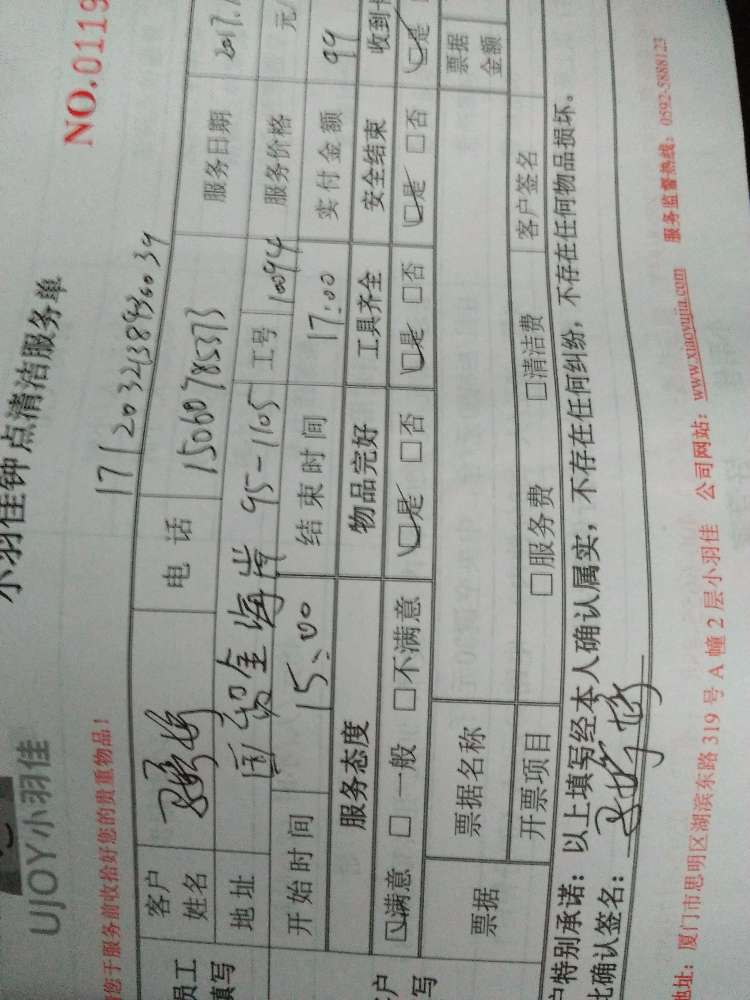 UJOY小羽佳
小羽佳钟点清洁服务单
NO.0119
您于服务前收拾好您的贵重物品!
员工填写
客户姓名
电话 15060785373
服务日期 2017.1
地址 国贸金海岸 95-1105
工号 10094
服务价格 元/
开始时间 15:00
结束时间 17:00
实付金额 99
服务态度 物品完好 工具齐全 安全结束 收到
☑满意 □一般 □不满意 ☑是 □否 ☑是 □否 ☑是 □否 ☑是
票据 票据名称 票据金额
开票项目 □服务费 □清洁费 客户签名
户特别承诺:以上填写经本人确认属实,不存在任何纠纷,不存在任何物品损坏。
此确认签名:
地址:厦门市思明区湖滨东路319号A幢2层小羽佳 公司网站:www.xiaoyujia.com 服务监督热线:0592-5888123